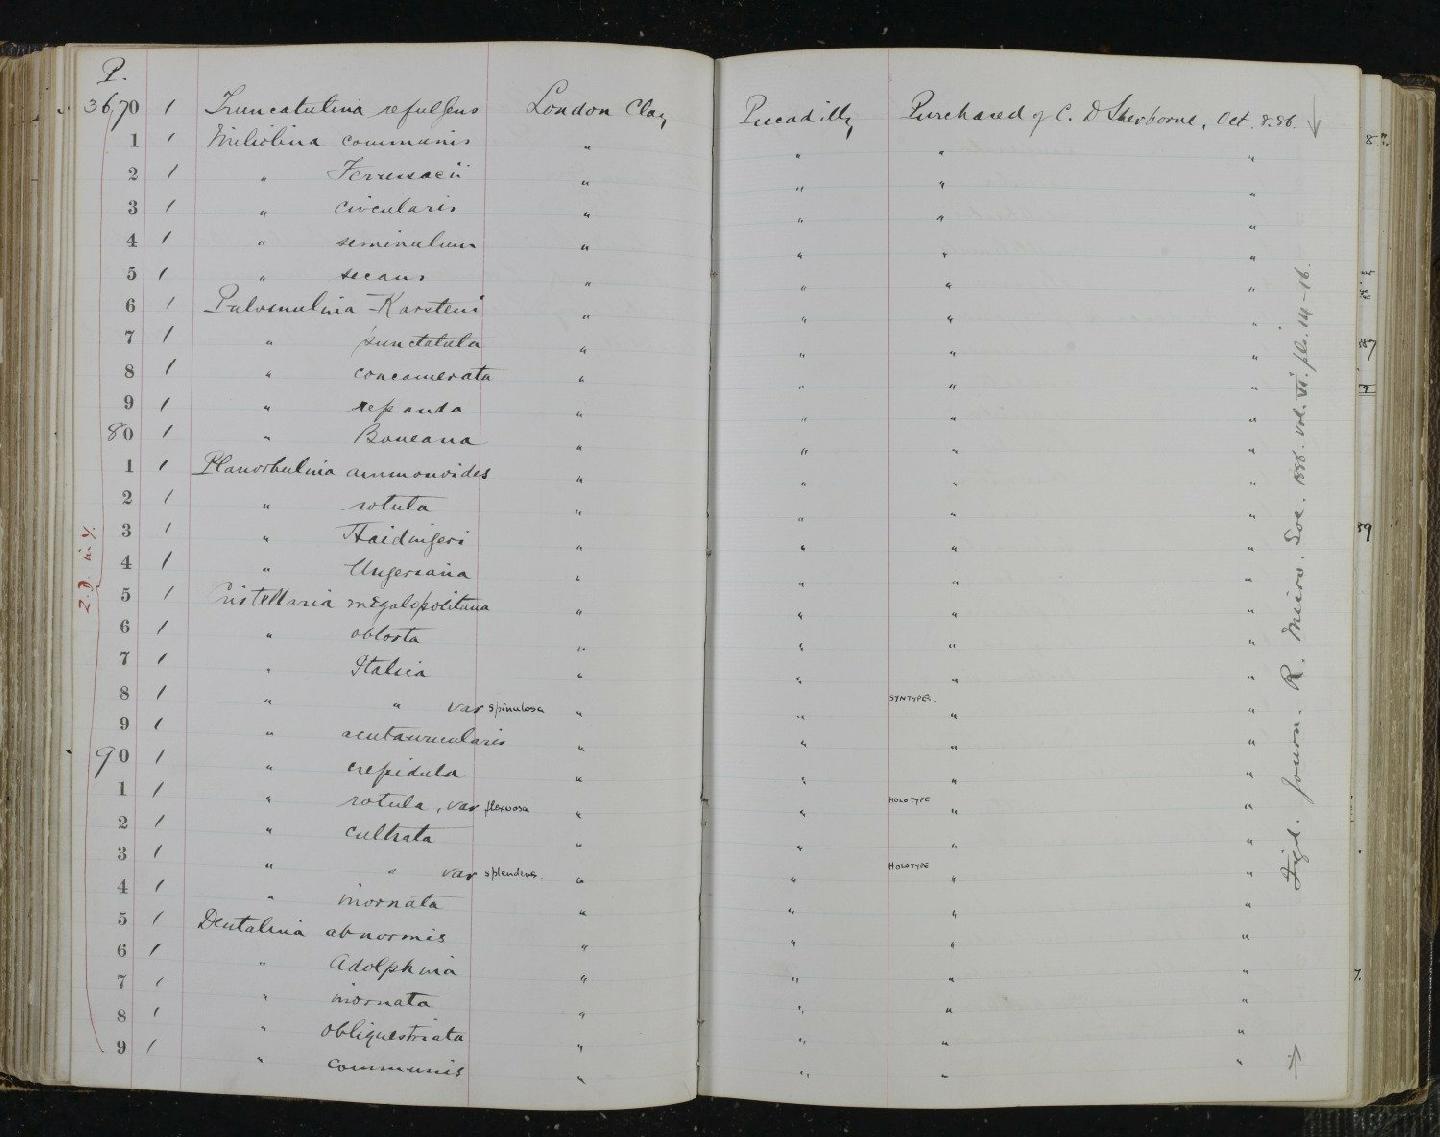 P.
3670 1 Truncatulina refulgens London Clay Piccadilly Purchased of C. D Sherborne, Oct. 8. 86.
1 1 Miliolina communis " " " "
2 1 " Ferussacii " " " "
3 1 " circularis " " " "
4 1 " seminulum " " " "
5 1 " secans " " " "
6 1 Pulvinulina Karsteni " " " "
7 1 " punctatula " " " "
8 1 " concamerata " " " "
9 1 " repanda " " " "
80 1 " Boueana " " " "
1 1 Planorbulina ammonoides " " " "
2 1 " rotula " " " "
3 1 " Haidingeri " " " "
4 1 " Ungeriana " " " "
5 1 Cristellaria megalopolitana " " " "
6 1 " oblosta " " " "
7 1 " Italica " " " "
8 1 " " var spinulosa " " SYNTYPES. " "
9 1 " acutauricularis " " " "
90 1 " crepidula " " " "
1 1 " rotula, var flexuosa " " HOLOTYPE " "
2 1 " cultrata " " " "
3 1 " " var splendens. " " HOLOTYPE " "
4 1 " inornata " " " "
5 1 Dentalina abnormis " " " "
6 1 " Adolphina " " " "
7 1 " inornata " " " "
8 1 " obliquestriata " " " "
9 1 " communis " " " "
Figd. Journ. R. Micro. Soc. 1886. vol. VI. pls. 14-16.